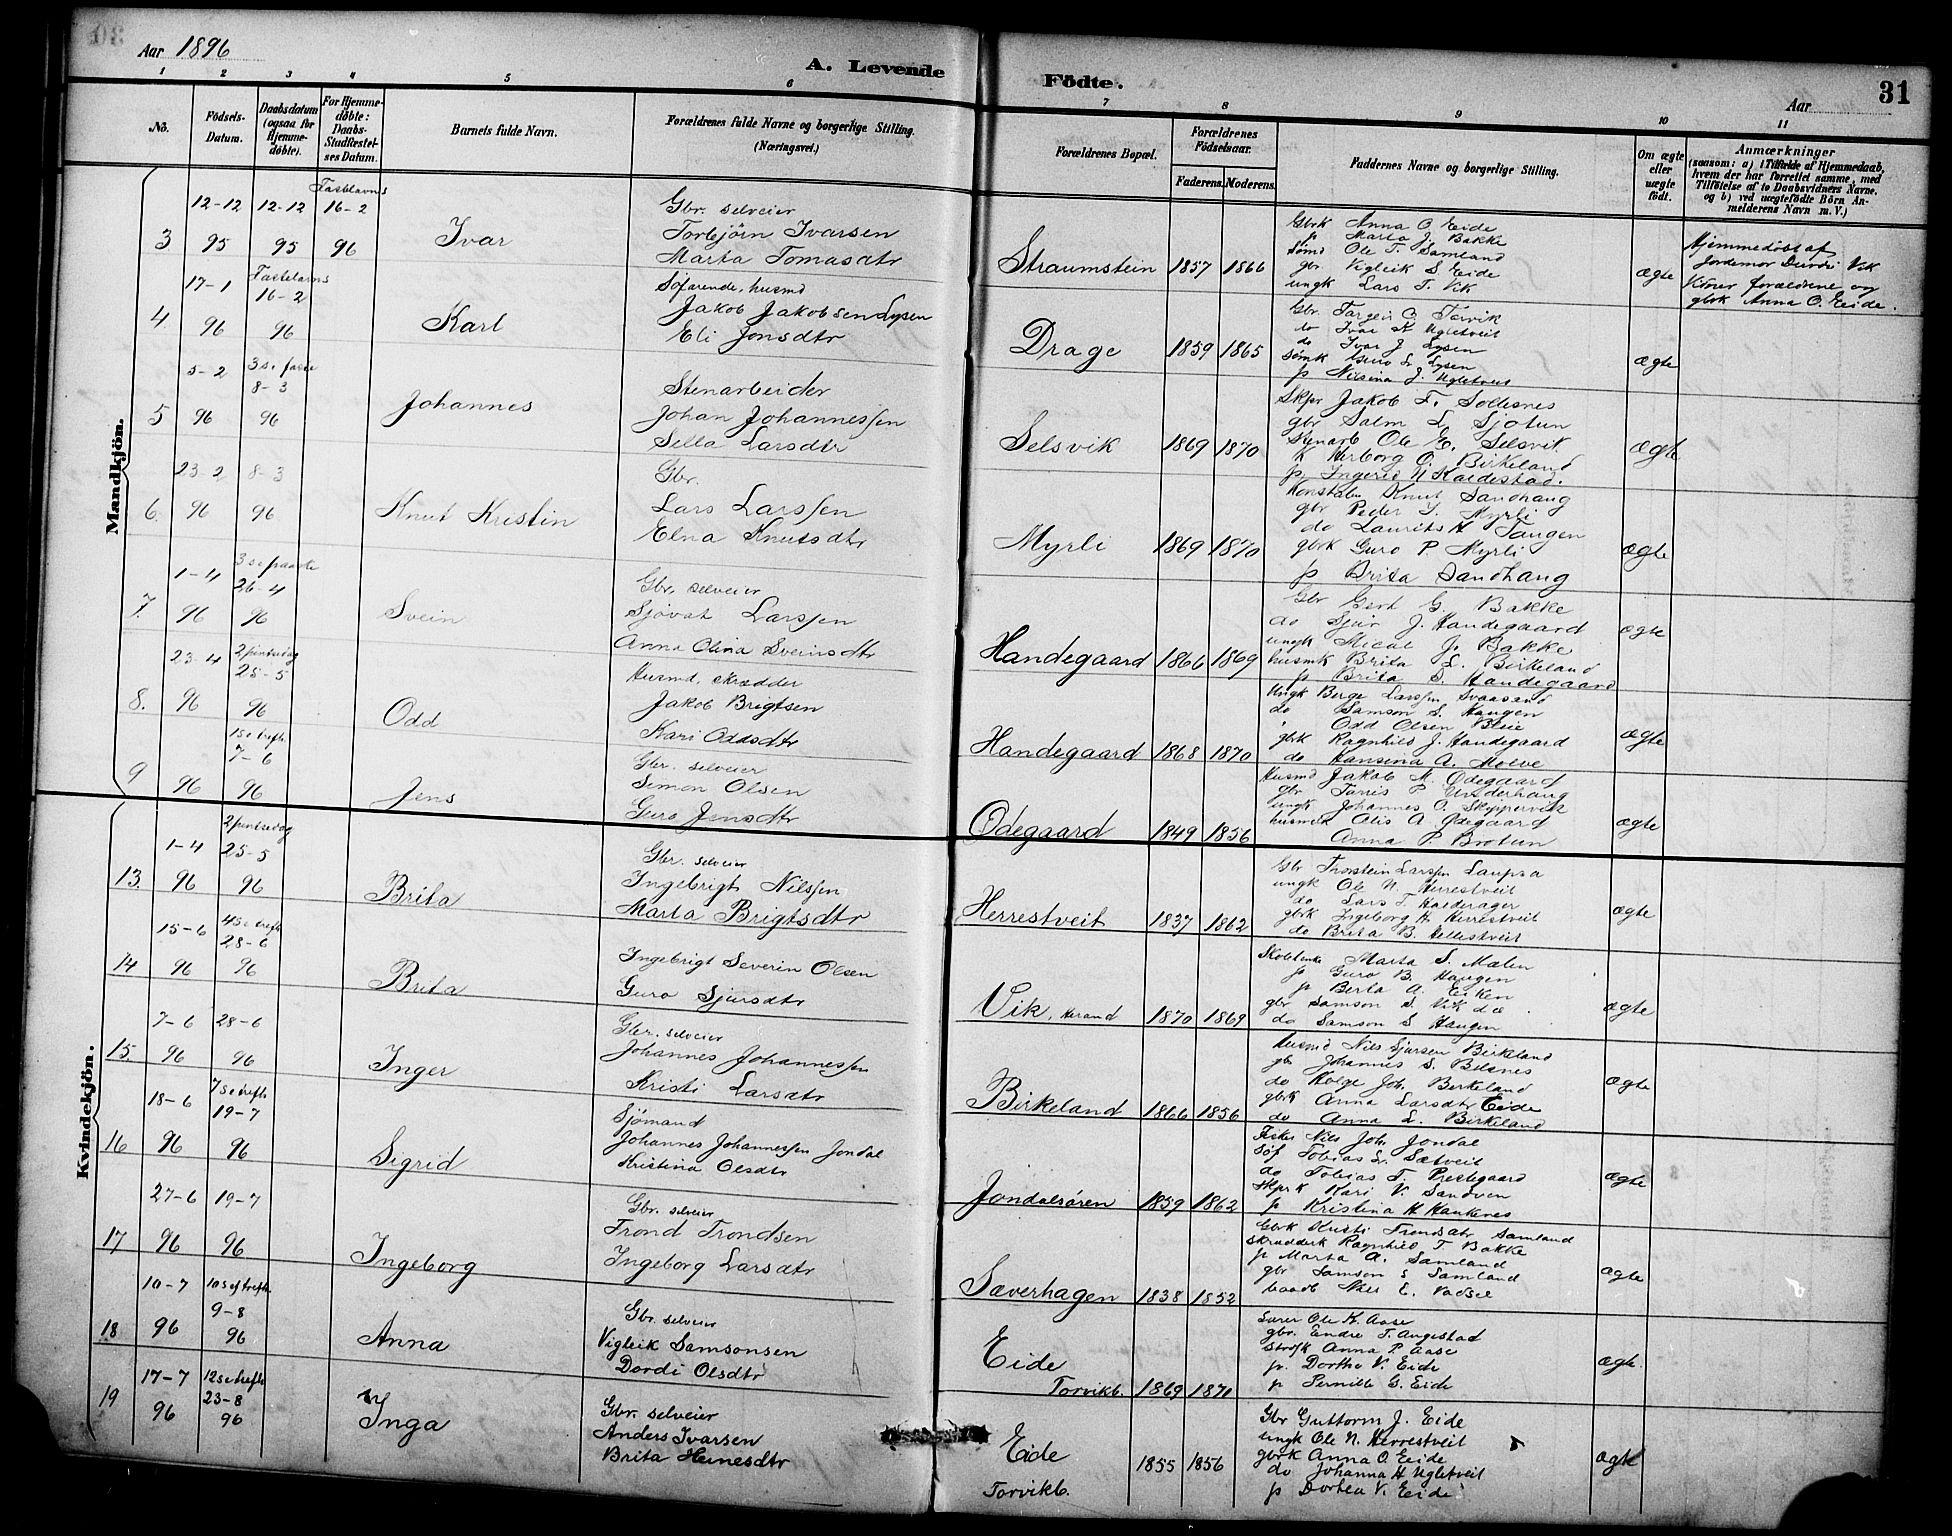 Aar 1896
A. Levende Födte.
Aar
31
1 2 3 4 5 6 7 8 9 10 11
No.
Födsels-Datum.
Daabsdatum (ogsaa for Hjemmedöbte).
For Hjemmedöbte: Daabs-Stadfæstelses Datum.
Barnets fulde Navn.
Forældrenes fulde Navne og borgerlige Stilling. (Næringsvei.)
Forældrenes Bopæl.
Forældrenes Födselsaar.
Faderens. Moderens.
Faddernes Navne og borgerlige Stilling.
Om ægte eller uægte födt.
Anmærkninger
(saasom: a) i Tilfælde af Hjemmedaab, hvem der har forrettet samme, med Tilföielse af to Daabsvidners Navne, og b) ved uægtefödte Börn Anmelderens Navn m. V.)
Mandkjön.
3 12-12 95 12-12 95 Fastelavns 16-2 96
Ivar
Gbr. selveier
Torbjörn Ivarsen
Marta Tomasdtr
Straumstein 1857 1866
Gbrk Anna O. Eide
p Marta J. Bakke
Sømd Ole T. Samland
gbr Vigleik S Eide
ungk Lars T. Vik
ægte
Hjemmedøbt af
Jordemor Durdei Vik
Vitner forældrene og
gbrk Anna O. Eide.
4 17-1 96 Fastelavns 16-2 96
Karl
Söfarende, husmd
Jakob Jakobsen Lysen
Eli Jonsdtr
Drage 1859 1865
Gbr. Torgeir O. Torvik
do Ivar K Ugletveit
do Ivar J Lysen
Sømk Guro L. Lysen
p Nilsina J. Ugletveit
ægte
5 5-2 96 3 s i faste 8-3 96
Johannes
Stenarbeider
Johan Johannessen
Sella Larsdtr
Selsvik 1869 1870
Skpr Jakob T. Soldesnes
gbr Salm L Sjotun
Stenarb Ole E. Selsvik
K Herborg O. Birkeland
p Ingerid N. Kaldestad.
ægte
6. 23-2 96 8-3 96
Knut Kristin
Gbr.
Lars Larssen
Elna Knutsdtr
Myrli 1869 1870
Konstabn Knut Sandhaug
gbr Peder S. Myrli
do Laurits H Tangen
gbrk Guro P Myrli
p Brita Sandhaug
ægte
7. 1-4 96 26-4 96
Svein
Gbr. selveier
Sjövat Larssen
Anna Olina Sveinsdtr
Handegaard 1866 1869
Gbr Gert G. Bakke
do Sjur J. Handegaard
ungk Mical J. Bakke
husmk Brita L. Birkeland
p Brita S. Handegaard
ægte
8. 23-4 96 2 pintsedag 25-5 96
Odd
Husmd, skrædder
Jakob Brigtsen
Kari Oddsdtr
Handegaard 1868 1870
Ungk Berge Larssen Svaasand
do Samson S. Haugen
" Odd Olsen Bleie
gbrk Ragnhild J. Handegaard
do Hansina A. Moltve
ægte
9 96 1 s e trefh. 7-6 96
Jens
Gbr. selveier
Simon Olsen
Guro Jensdtr
Odegaard 1849 1856
Husmd Jakob M. Ødegaard
gbr Tarris P. Underhaug
ungk Johannes O. Skyppervik
husmk Olis A Ødegaard
Anna P. Brotun
ægte
Kvindekjön.
13. 1-4 96 2 pintsedag 25-5 96
Brita
Gbr. selveier
Ingebrigt Nilssen
Marta Brigtsdtr
Herrestveit 1837 1862
Gbr Torstein Larssen Laupsa
ungk Ole N. Herrestveit
do Lars T. Halderager
gbrk Ingeborg H Herrestveit
do Brita B. Hellestveit
ægte
14 15-6 96 4 s e trefh 28-6 96
Brita
Ingebrigt Severin Olsen
Guro Sjursdtr
Vik, Herand 1870 1869
Marta S. Mælen
p Guro B. Haugen
p Berta A. Eiken
gbr Samson S Vik
do Samson S Haugen
ægte
15. 7-6 96 28-6 96
Inger
Gbr. selveier
Johannes Johannessen
Kristi Larsdtr
Birkeland 1866 1856
Husmd Nils Sjursen Birkeland
gbr Johannes S. Belsnes
do Helge Joh. Berkeland
gbrk Anna Larsdtr Eide
do Anna L. Birkeland
ægte
16 18-6 96 7 s e trefh 19-7 96
Sigrid
Sjömand
Johannes Johannessen Jondal
Kristina Olsdtr
Jondalsören 1859 1862
Fisker Nils Joh. Jondal
Söf Tobias L. Sætveit
do Tobias T. Prestegaard
Skpr k Kari V. Sandven
p Kristina H Haukenes
ægte
17 27-6 96 19-7 96
Ingeborg
Gbr. selveier
Trond Trondsen
Ingeborg Larsdtr
Sæverhagen 1838 1852
Gbrk Kristi Trondsdtr Samland
skrædderk Ragnhild T. Bakke
p Marta A. Samland
gbr Samson S Samland
baadb Nils E. Vadsel
ægte
18 10-7 96 10 s e trefh. 9-8 96
Anna
Gbr. selveier
Vigleik Samsonsen
Dordi Olsdtr
Eide
Torvikb. 1869 1870
Lærer Ole K. Aase
gbr. Endre T. Augestad
Anna P. Aase
p. Dorthe V. Eide
p Pernille G. Eide
ægte
19 17-7 96 12 s e trefh 23-8 96
Inga
Gbr. selveier
Anders Ivarsen
Brita Heinesdtr
Eide
Torvikb. 1855 1856
Gbr Guttorm J. Eide
ungk Ole N. Herrestveit
gbrk Anna O. Eide
do Johanna H Ugletveit
p Dorthea V. Eide
ægte